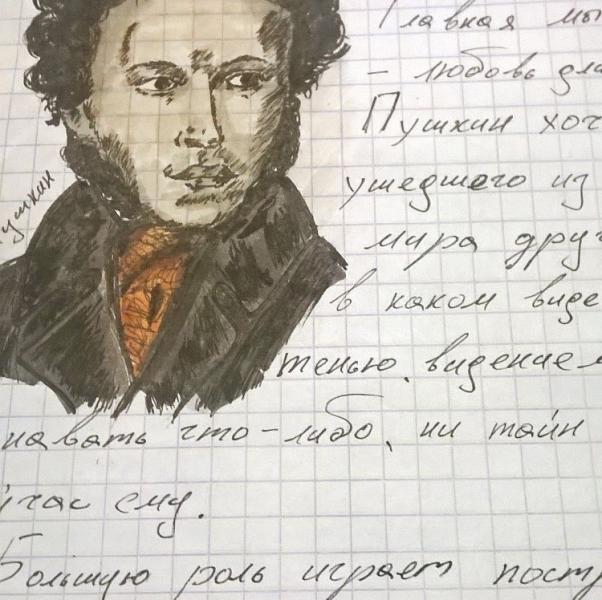 Главная мы
- любовь для
Пушкин хоч
ушедшего из
Пушкин
мира друг
в каком виде
тенью, видением
навать что-либо, ни тайн
час ему.
Большую роль играет постр